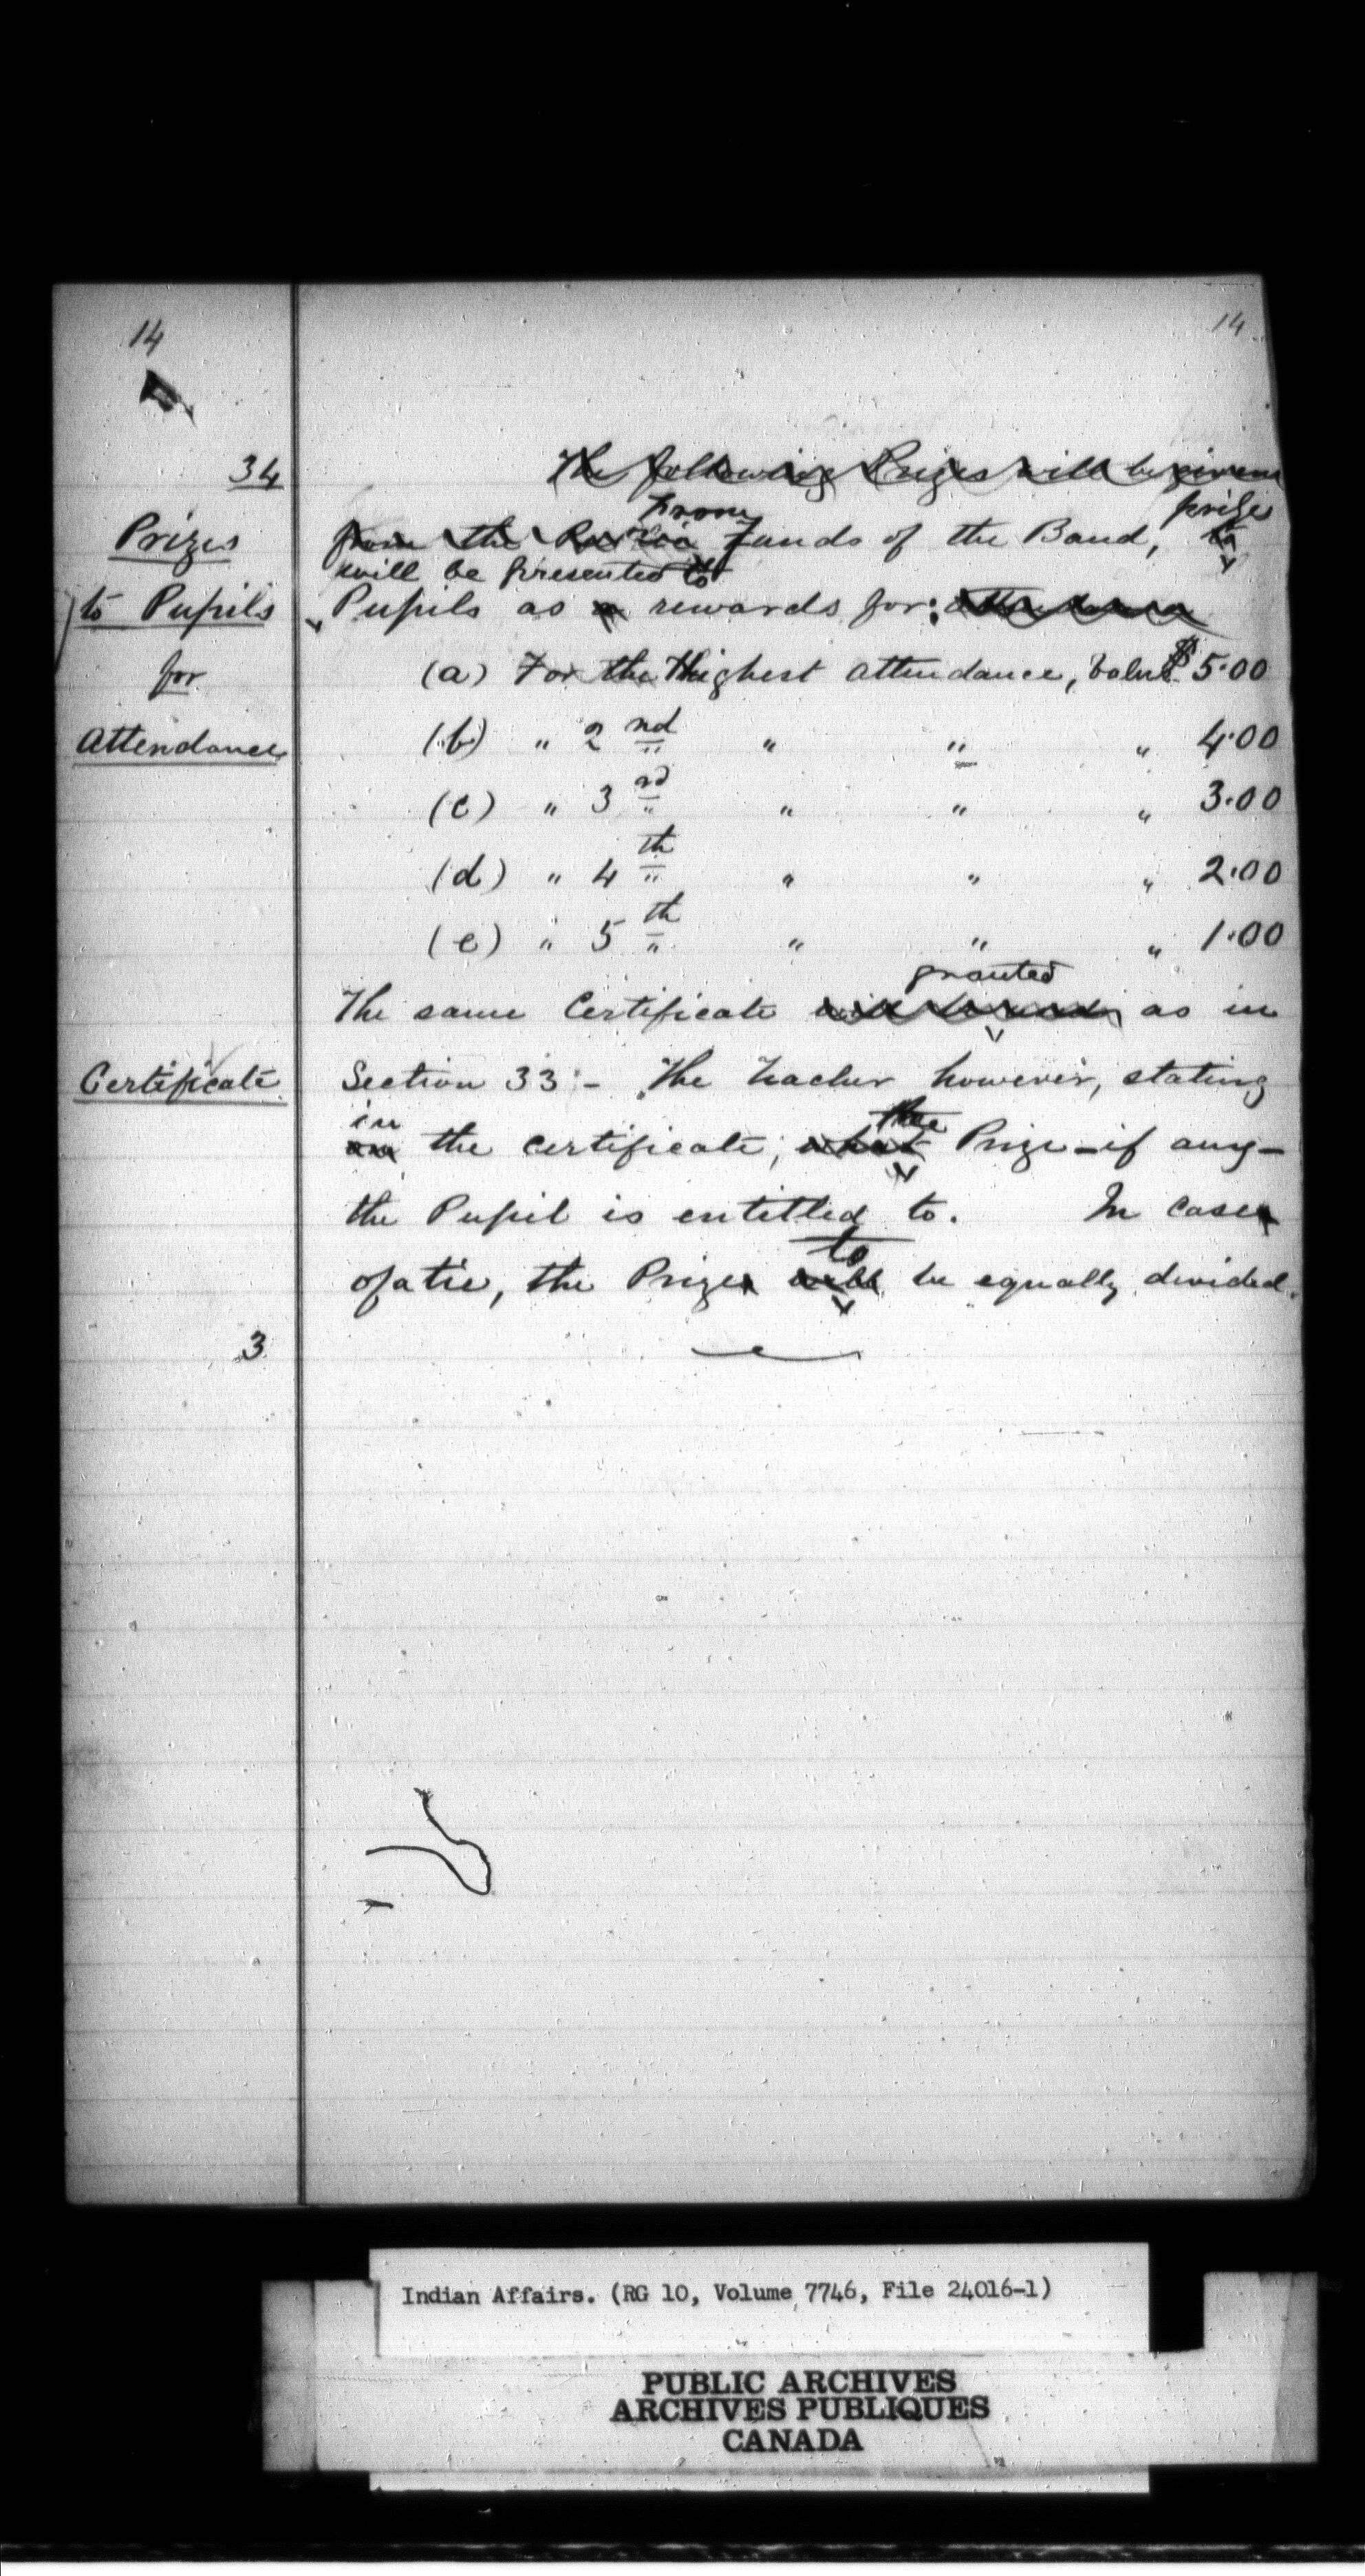 14
14
34
The following Prizes will be given
From
prizes
Prizes
from the Public Funds of the Band, to
will be presented to
to Pupils
Pupils as a rewards for: attendance
for
(a) For the Highest attendance, value $5.00
Attendance
(b) " 2nd " " " 4.00
(c) " 3rd " " " 3.00
(d) " 4th " " " 2.00
(e) " 5th " " " 1.00
granted
The same Certificate will be made as in
Certificate
Section 33:- The Teacher however, stating
in the
on the certificate, what Prize - if any -
the Pupil is entitled to. In case
to
of a tie, the Prizes will be equally divided.
3
Indian Affairs. (RG 10, Volume 7746, File 24016-1)
PUBLIC ARCHIVES
ARCHIVES PUBLIQUES
CANADA